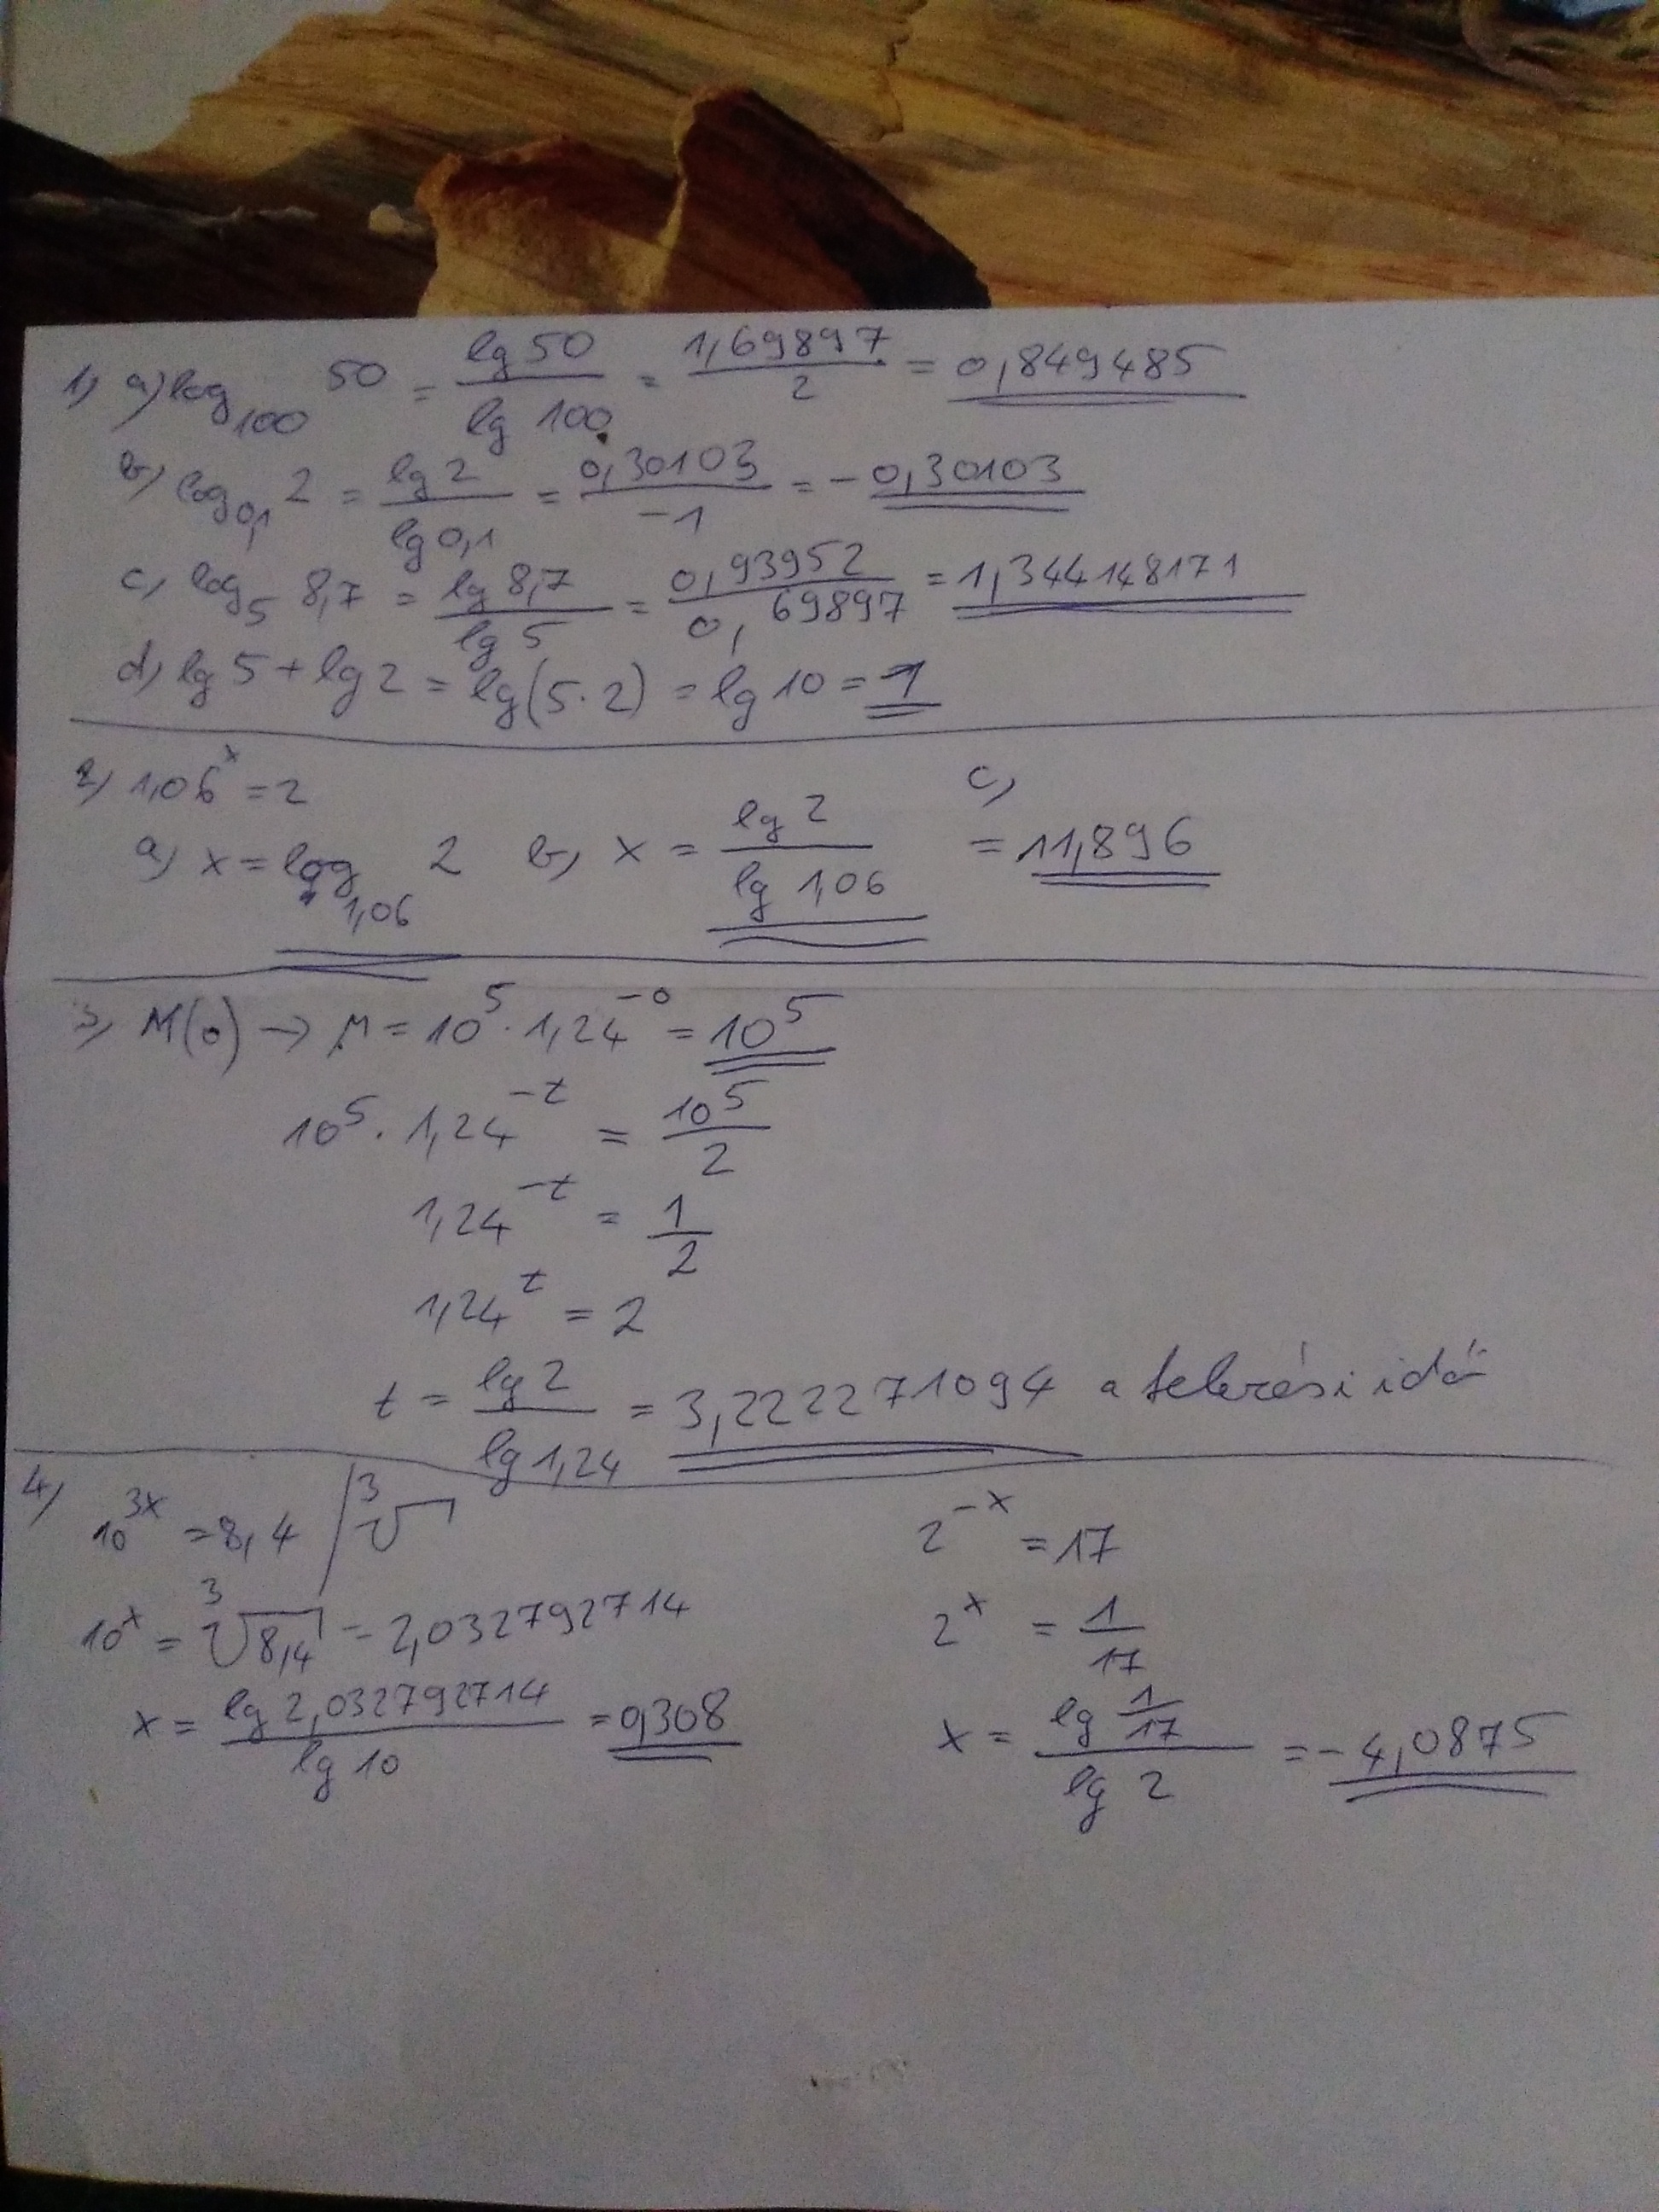 1) a) log₁₀₀ 50 = lg 50 / lg 100 = 1,69897 / 2 = 0,849485
b) log₀,₁ 2 = lg 2 / lg 0,1 = 0,30103 / -1 = -0,30103
c) log₅ 8,7 = lg 8,7 / lg 5 = 0,93952 / 0,69897 = 1,344148171
d) lg 5 + lg 2 = lg(5·2) = lg 10 = 1
2) 1,06ˣ = 2
a) x = log₁,₀₆ 2 b) x = lg 2 / lg 1,06 c) = 11,896
3) M(0) → M = 10⁵ · 1,24⁻⁰ = 10⁵
10⁵ · 1,24⁻ᵗ = 10⁵ / 2
1,24⁻ᵗ = 1 / 2
1,24ᵗ = 2
t = lg 2 / lg 1,24 = 3,222271094 a felezési idő
4) 10³ˣ = 8,4 / ³√
10ˣ = ³√8,4 = 2,032792714
x = lg 2,032792714 / lg 10 = 0,308
2⁻ˣ = 17
2ˣ = 1 / 17
x = lg 1/17 / lg 2 = -4,0875